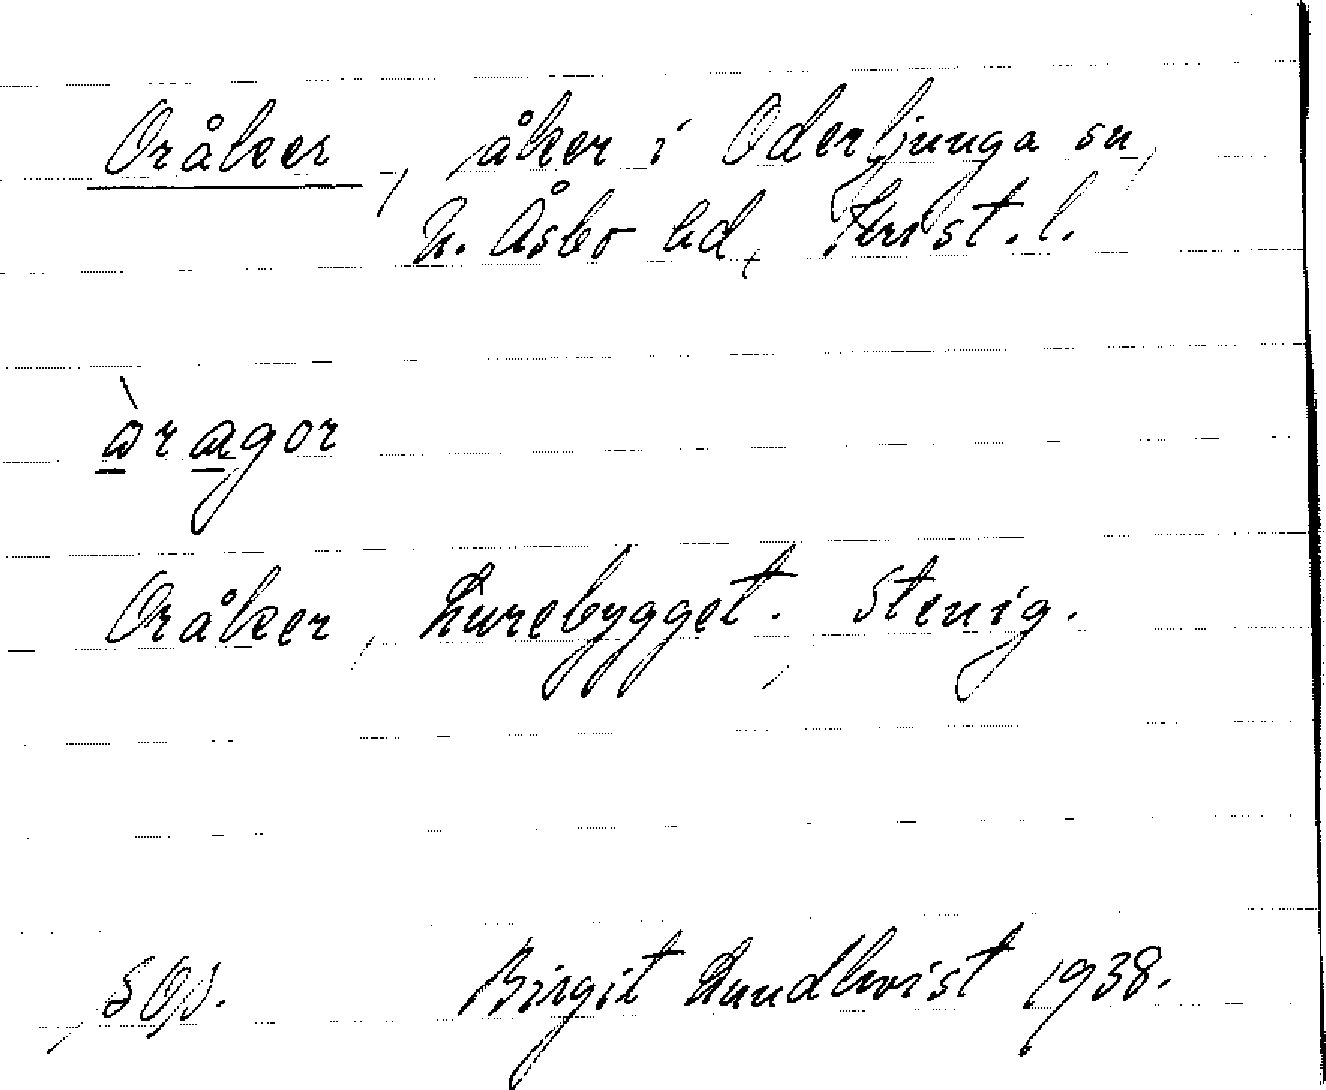 Oråker, åker i Oderljunga sn,
N. Åsbo hd, Krist. l.
àragor
Oråker, Lurebygget. Stenig.
Birgit Lundkvist 1938.